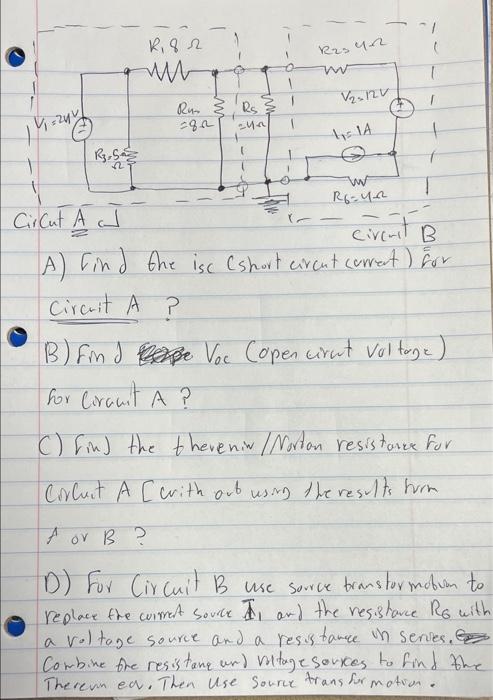 R1 8 Ω
R2=4Ω
V2=12V
V1=24V
R4=
=8Ω
R5
=4Ω
I1=1A
R3=5
Ω
R6=4Ω
CirCut A
Circuit B
A) Find the isc (short circut current) for
Circuit A ?
B) Find Voc (open circut voltage)
for Circuit A ?
C) Find the thevenin/Norton resistance for
Circuit A [with out using the results from
A or B ?
D) For Circuit B use source transformation to
replace the current source I1 and the resistance R6 with
a voltage source and a resistance in series.
Combine the resistance and voltage sources to find the
Thevenin eq. Then use source transformation.